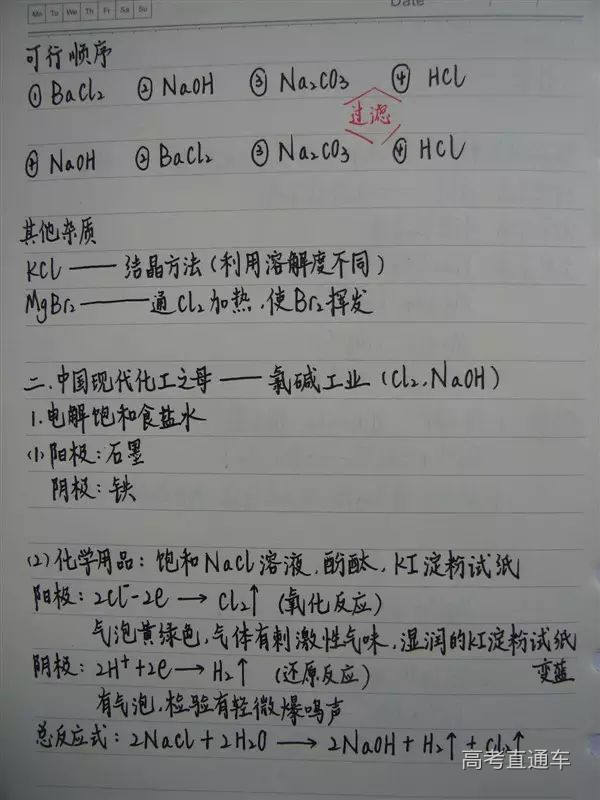 Mo Tu We Th Fr Sa Su
Date
可行顺序
① BaCl2 ② NaOH ③ Na2CO3 ④ HCl
过滤
① NaOH ② BaCl2 ③ Na2CO3 ④ HCl
其他杂质
KCl —— 结晶方法(利用溶解度不同)
MgBr2 —— 通Cl2加热,使Br2挥发
二.中国现代化工之母 —— 氯碱工业(Cl2,NaOH)
1.电解饱和食盐水
(1)阳极:石墨
阴极:铁
(2)化学用品:饱和NaCl溶液,酚酞,KI淀粉试纸
阳极:2Cl⁻-2e → Cl2↑ (氧化反应)
气泡黄绿色,气体有刺激性气味,湿润的KI淀粉试纸
变蓝
阴极:2H⁺+2e → H2↑ (还原反应)
有气泡,检验有轻微爆鸣声
总反应式:2NaCl+2H2O → 2NaOH+H2↑+Cl2↑
高考直通车